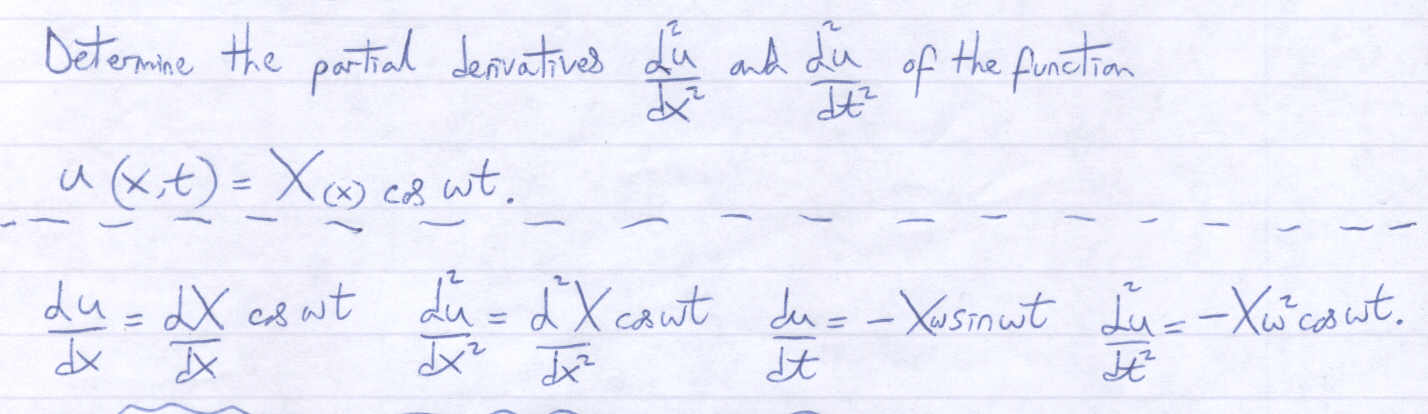 Determine the partial derivatives d²u/dx² and d²u/dt² of the function
u (x,t) = X(x) cos ωt.
du/dx = dX/dx cos ωt d²u/dx² = d²X/dx² cos ωt du/dt = - Xω sin ωt d²u/dt² = - Xω² cos ωt.